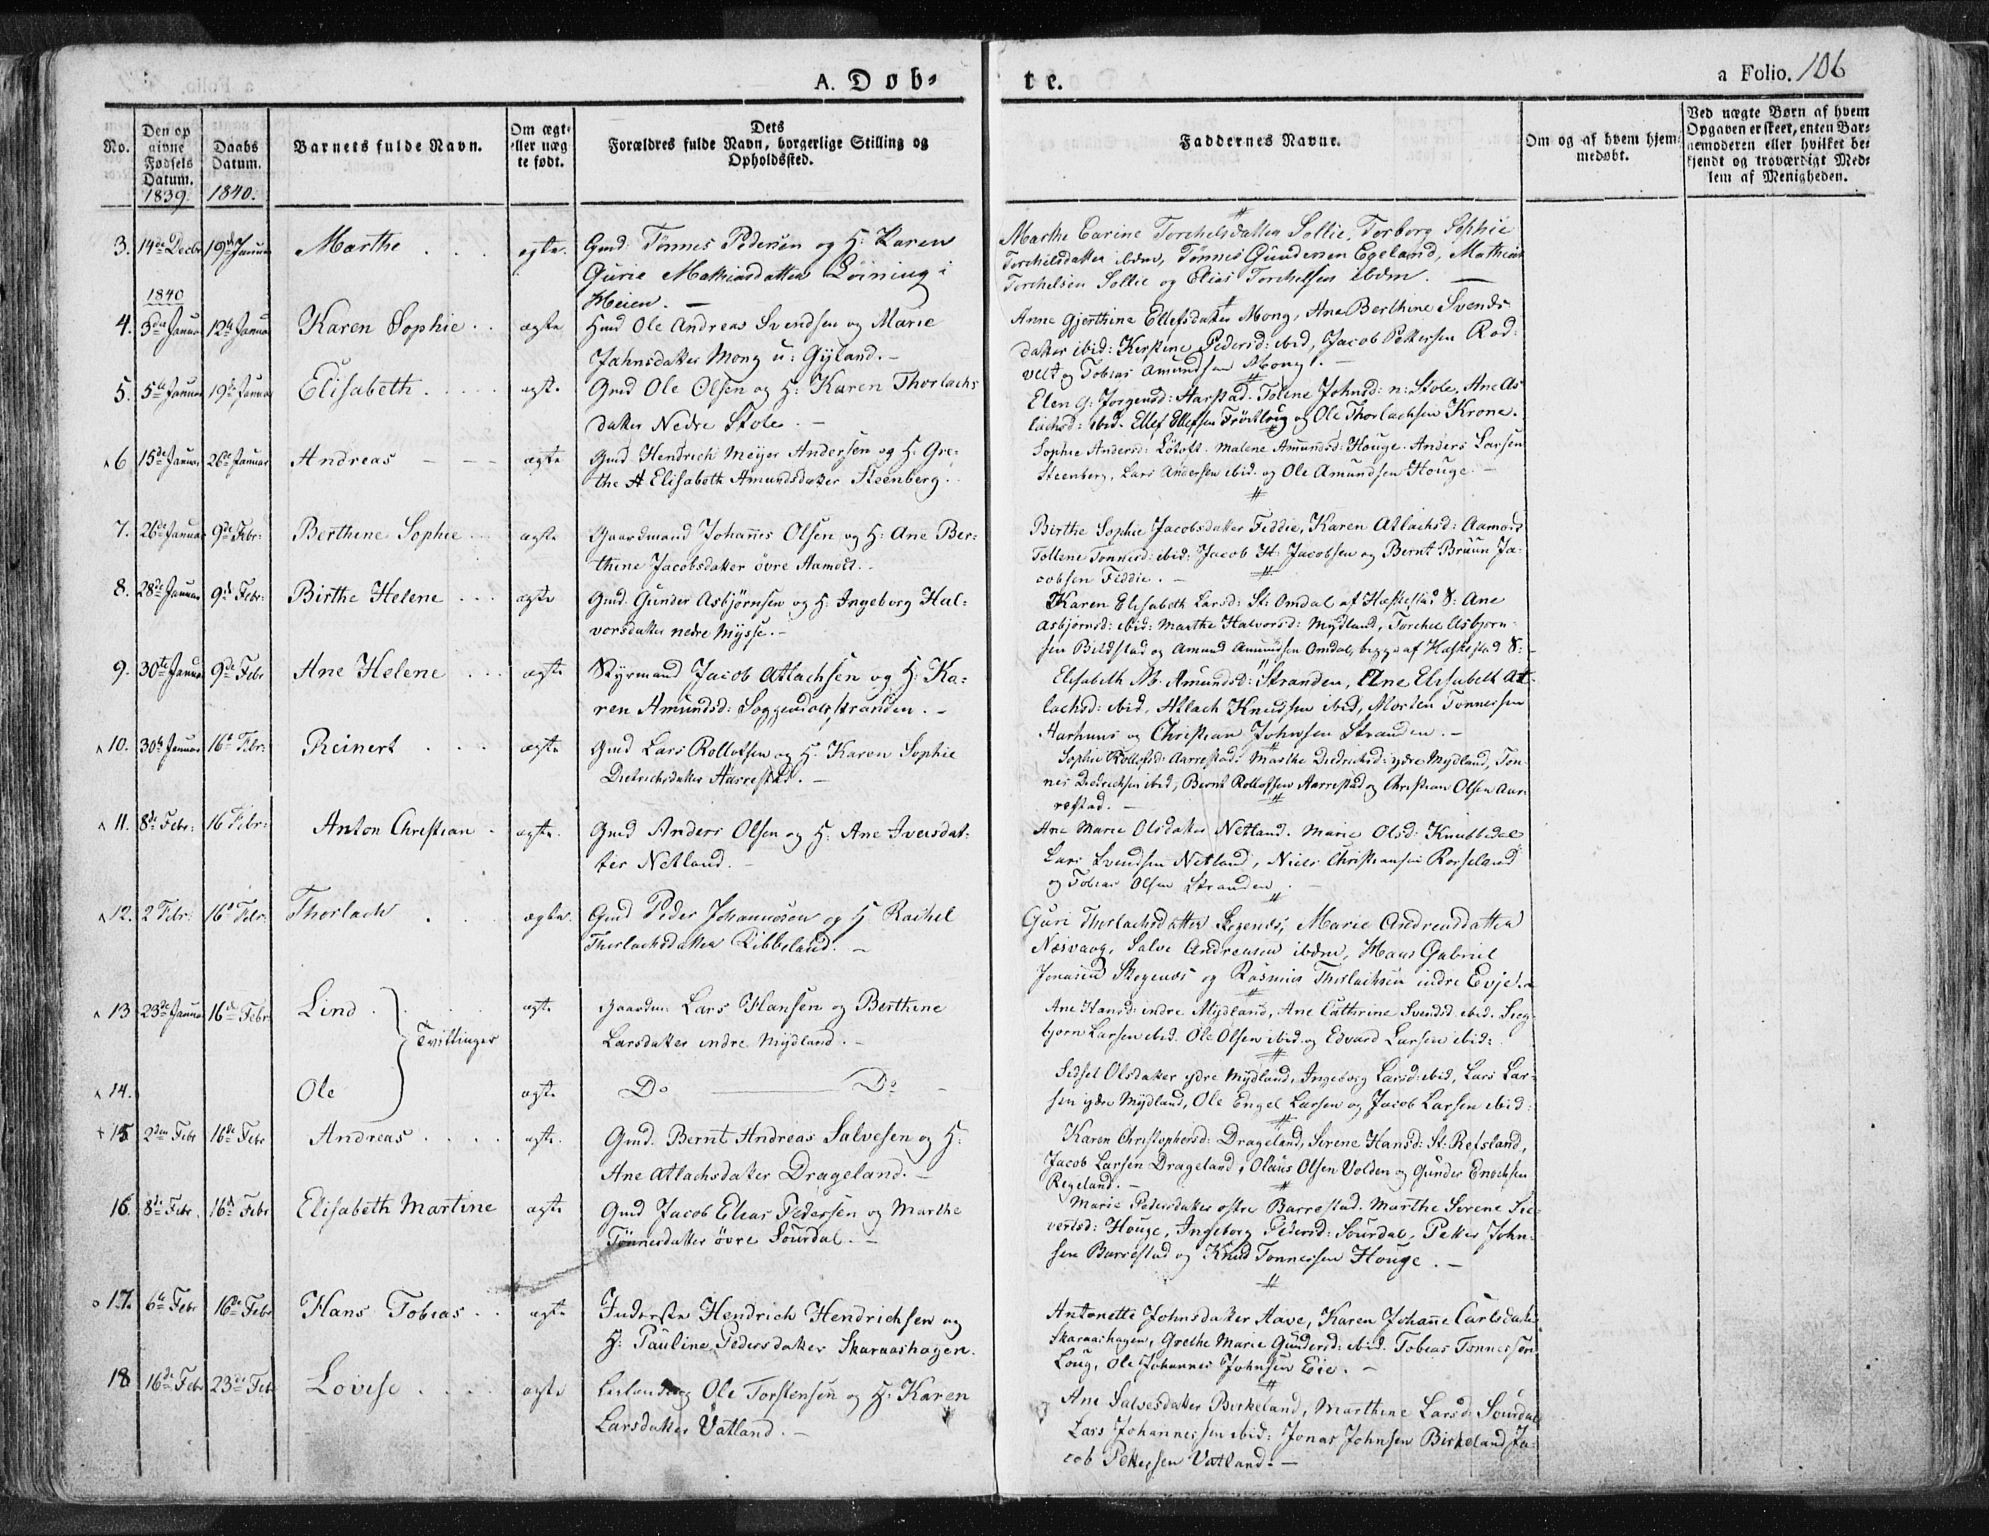 A. Døb-
te.
a Folio. 106
No.
Den op
givne
Fødsels
Datum.
1839.
Daabs
Datum.
1840.
Barnets fulde Navn.
Om ægt-
eller næg
te født.
Dets
Forældres fulde Navn, borgerlige Stilling og
Opholdssted.
Faddernes Navne.
Om og af hvem hjem-
medøbt.
Ved uægte Børn af hvem
Opgaven er skeet, enten Bar-
nemoderen eller hvilket be-
kjendt og troværdigt Med-
lem af Menigheden.
3. 14de Decbr 19de Januar Marthe ægte. Gmd: Tønnes Pedersen og H: Karen
Gurie Mathiasdatter Løining i
Heien. —
Marthe Carine Torchelsdatter Sollie, Torborg Sophie
Torchilsdatter ibdm, Tønnes Gundersen Egeland, Mathias
Torchelsen Sollie og Elias Torchelsen ibdm. —
1840
4. 3die Januar 12te Januar Karen Sophie ægte Hmd Ole Andreas Svendsen og Marie
Jahnsdatter Mong u: Gyland. —
Anne Gjerthine Ellefsdatter Mong, Ane Berthine Svends-
datter ibid: Kirstine Pedersd: ibid, Jacob Pettersen Rod-
velt og Tobias Amundsen Mong.
5. 5te Januar 19de Januar Elisabeth ægte Gmd Ole Olsen og H: Karen Thorlachs
datter Nedre Stole. —
Elen G: Jørgensd: Harstad. Tolene Johnsd: n: Stole, Ane As
lachsd: ibid. Ellef Ellefsen Frøitlog og Ole Thorlachsen Krone.
6 15de Januar 26de Januar Andreas ægte Gmd Hendrich Meyer Andersen og H: Gre-
the A Elisabeth Amundsdatter Steenberg.
Sophie Andersd: Løtoft. Malene Amundsd: Houge. Anders Larsen
Steenberg, Lars Andersen ibid. og Ole Amundsen Houge. —
7. 26de Januar 9de Febr: Berthine Sophie ægte Gaardmand Johannes Olsen og H: Ane Ber-
thine Jacobsdatter øvre Aamodt. —
Birthe Sophie Jacobsdatter Feddie, Karen Atlachsd: Aamodt
Tollene Tønnesd: ibid: Jacob H: Jacobsen og Bernt Bruun Ja-
cobsen Feddie. —
8. 28de Januar 9de Febr: Birthe Helene ægte Gmd: Gunder Asbjørnsen og H: Ingeborg Hal-
vorsdatter nedre Mysse. —
Karen Elisabeth Larsd: St: Omdal af Heskestad S: Ane
Asbjørnsd: ibid: Marthe Halvorsd: Mydland, Torchel Asbjørn-
sen Bildstad og Amund Amundsen Omdal, begge af Heskestad S: —
9. 30te Januar 9de Febr Ane Helene ægte Styrmand Jacob Atlachsen og H: Ka-
ren Amundsd: Soggendalsstranden. —
Elisabeth M. Amundsd: Stranden, Ane Elisabeth At-
lachsd: ibid, Atlach Knudsen ibid, Morten Tønnessen
Aarhuus og Christian Johnsen Stranden. —
10. 30te Januar 16de Febr: Reinert ægte Gmd Lars Rollofsen og H: Karen Sophie
Dietrichsdatter Aarrestad. —
Sophie Rollofsd: Aarrestad. Marthe Diedrichsd: ydre Mydland, Tøn-
nes Diedrichsen ibid, Bernt Rollofsen Aarrestad og Christian Olsen Aar-
restad. —
11. 8de Febr: 16 Febr: Anton Christian ægte Gmd Anders Olsen og H: Ane Iversdat-
ter Netland. —
Ane Marie Olsdatter Netland. Marie Olsd: Knubbedal
Lars Svendsen Netland, Niels Christiansen Rorseland
og Tobias Olsen Stranden. —
12. 2 Febr: 16d Febr: Thorlach ægte Gmd Peder Johannesen og H: Rachel
Thorlachsdatter Kibbeland. —
Guri Thorlachsdatter Regenes, Marie Andreasdatter
Nesvaag, Salve Andreasen ibdm, Hans Gabriel
Jonassen Skogenes og Rasmus Thorlachsen indre Evje. —
13 23de Januar 16de Febr Lind ægte Gaardm: Lars Hansen og Berthine
Larsdatter indre Mydland. —
Tvillinger
Ane Hansd: indre Mydland, Ane Cathrine Svendsd: ibid. Sieg-
bjørn Larsen ibid. Ole Olsen ibid. og Edvard Larsen ibid:
14. Ole ægte Do — Do —
Sidsel Olsdatter ydre Mydland, Ingeborg Larsd: ibid, Lars Lar-
sen ydre Mydland, Ole Engel Larsen og Jacob Larsen ibid:
15 2den Febr 16de Febr Andreas ægte. Gmd. Bernt Andreas Salvesen og H:
Ane Atlachsdatter Drageland. —
Karen Christophersd: Drageland, Serene Hansd: St: Refsland,
Jacob Larsen Drageland, Olaus Olsen Volden og Gunder Enochsen
Regeland. —
16. 8de Febr. 16de Febr Elisabeth Martine ægte Gmd Jacob Elias Pedersen og Marthe
Tønnesdatter øvre Sourdal. —
Marie Pedersdatter østre Barrestad. Marthe Serene Sie-
vertsd: Houge, Ingeborg Pedersd: Sourdal, Petter John-
sen Barrestad og Knud Tønnessen Houge. —
17. 6te Febr 16de Febr Hans Tobias ægte Inderste Hendrich Hendrichsen og
H: Pauline Pedersdatter Skaraashagen.
Antonette Johnsdatter Aave, Karen Johanne Carlsdatter
Skaraashagen, Grethe Marie Gundersd: ibid. Tobias Tønnessen
Loug, Ole Johannes Johnsen Eie. —
18 16de Febr 23de Feb Lovise ægte Ole Torstensen og H: Karen
Larsdatter Vatland. —
Ane Salvesdatter Birkeland, Marthine Larsd: Sourdal
Lars Johannessen ibid: Jonas Johnsen Birkeland, Ja-
cob Pettersen Vatland. —